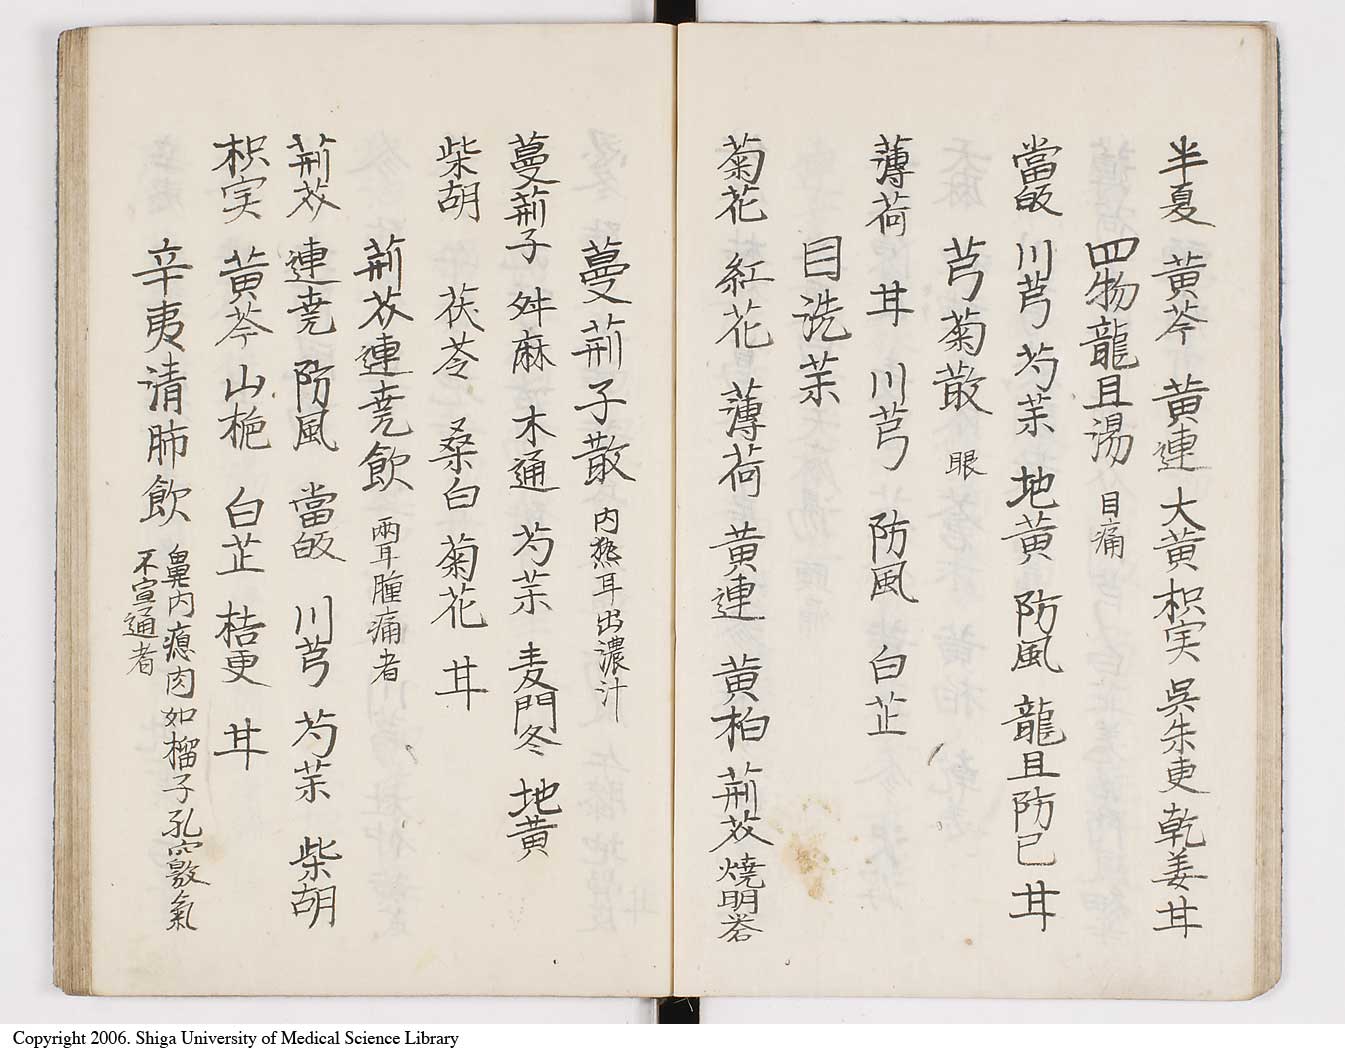 半夏 黄芩 黄連 大黄 枳実 呉朱更 乾姜 甘
四物龍且湯 目痛
當皈 川芎 芍茱 地黄 防風 龍且 防已 甘
芎菊散 眼
薄荷 甘 川芎 防風 白芷
目洗茱
菊花 紅花 薄荷 黄連 黄柏 荊芥 燒明礬
蔓荊子散 内熱耳出濃汁
蔓荊子 舛麻 木通 芍茱 麦門冬 地黄
柴胡 茯苓 桑白 菊花 甘
荊芥連堯飲 兩耳腫痛者
荊芥 連堯 防風 當皈 川芎 芍茱 柴胡
枳実 黄芩 山梔 白芷 桔更 甘
辛夷清肺飲 鼻内瘜肉如榴子孔竅氣
不宣通者
Copyright 2006. Shiga University of Medical Science Library